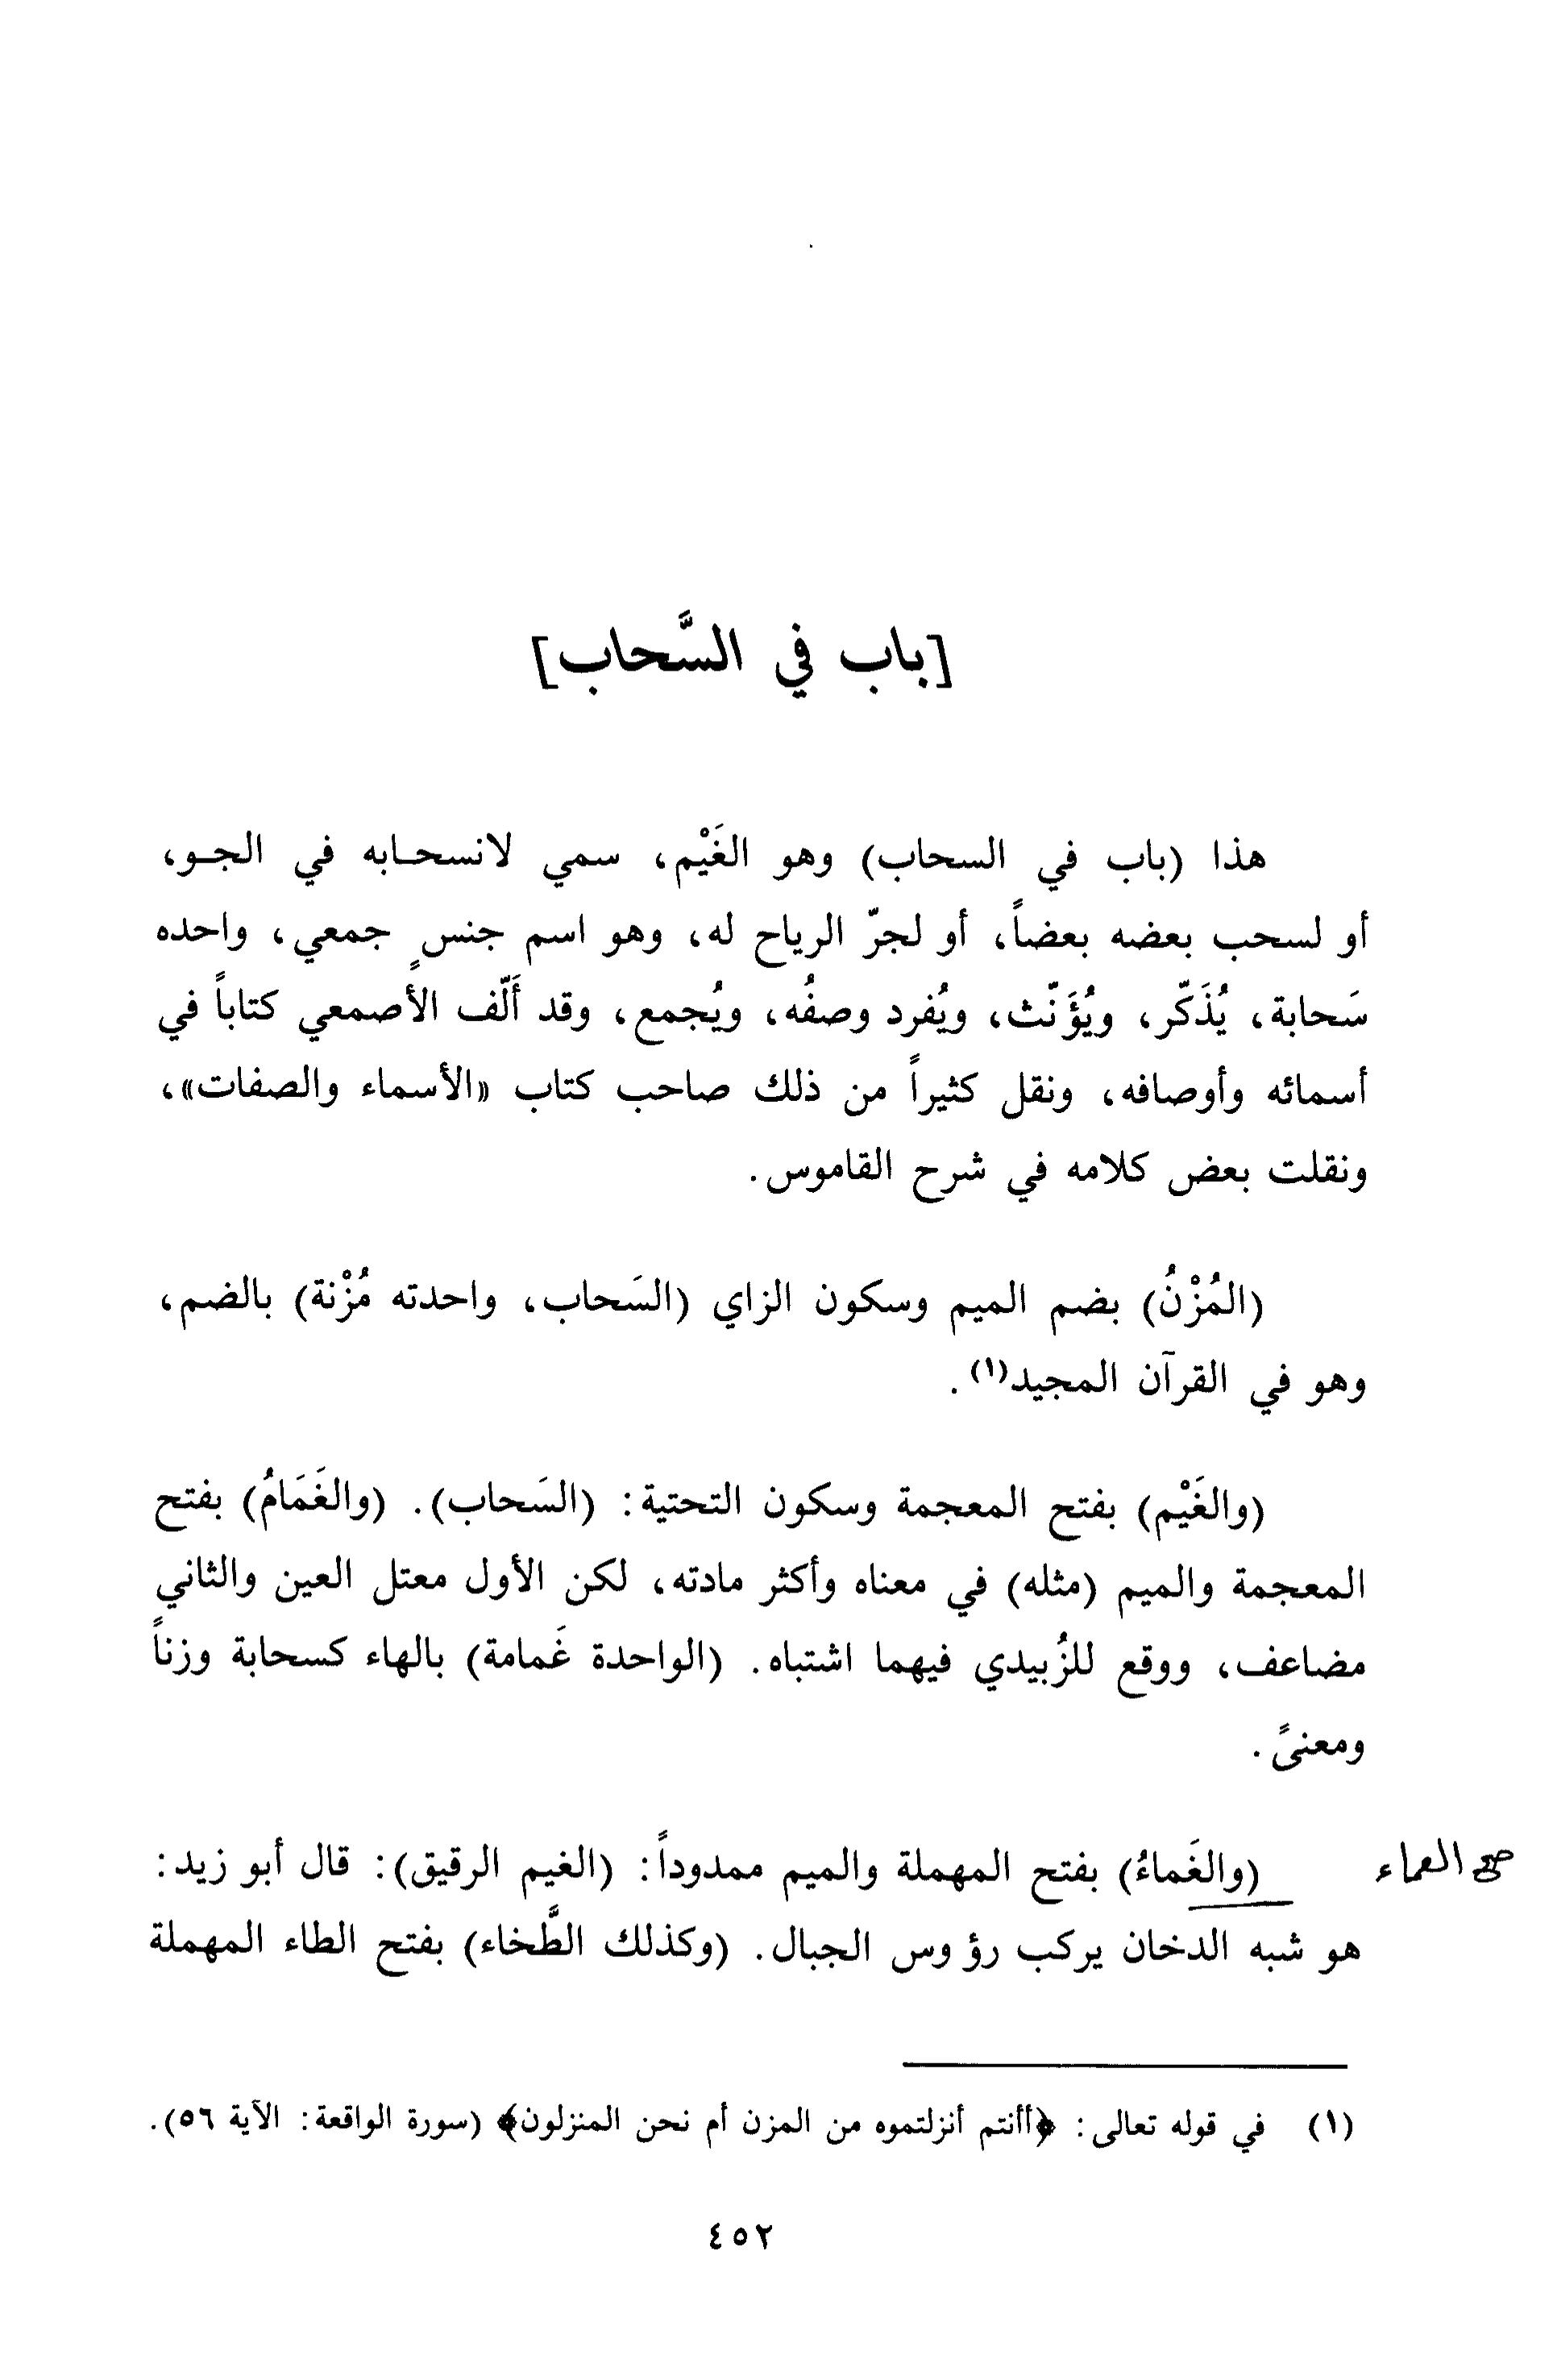 [باب في السَّحاب]
هذا (باب في السحاب) وهو الغَيْم، سمي لانسحابه في الجو،
أو لسحب بعضه بعضاً، أو لجرّ الرياح له، وهو اسم جنسٍ جمعي، واحده
سَحابة، يُذَكّر، ويُؤَنّث، ويُفرد وصفُه، ويُجمع، وقد أَلّف الأصمعي كتاباً في
أسمائه وأوصافه، ونقل كثيراً من ذلك صاحب كتاب «الأسماء والصفات»،
ونقلت بعض كلامه في شرح القاموس.
(المُزْنُ) بضم الميم وسكون الزاي (السَحاب، واحدته مُزْنة) بالضم،
وهو في القرآن المجيد(١).
(والغَيْم) بفتح المعجمة وسكون التحتية: (السَحاب). (والغَمَامُ) بفتح
المعجمة والميم (مثله) في معناه وأكثر مادته، لكن الأول معتل العين والثاني
مضاعف، ووقع للزُبيدي فيهما اشتباه. (الواحدة غَمامة) بالهاء كسحابة وزناً
ومعنىً.
(والغَماءُ) بفتح المهملة والميم ممدوداً: (الغيم الرقيق): قال أبو زيد:
صح العماء
هو شبه الدخان يركب رؤوس الجبال. (وكذلك الطَّخاء) بفتح الطاء المهملة
(١) في قوله تعالى: ﴿أأنتم أنزلتموه من المزن أم نحن المنزلون﴾ (سورة الواقعة: الآية ٥٦).
٤٥٢